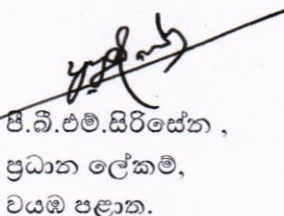 පී.බී.එම්.සිරිසේන ,
ප්‍රධාන ලේකම්,
වයඹ පළාත.